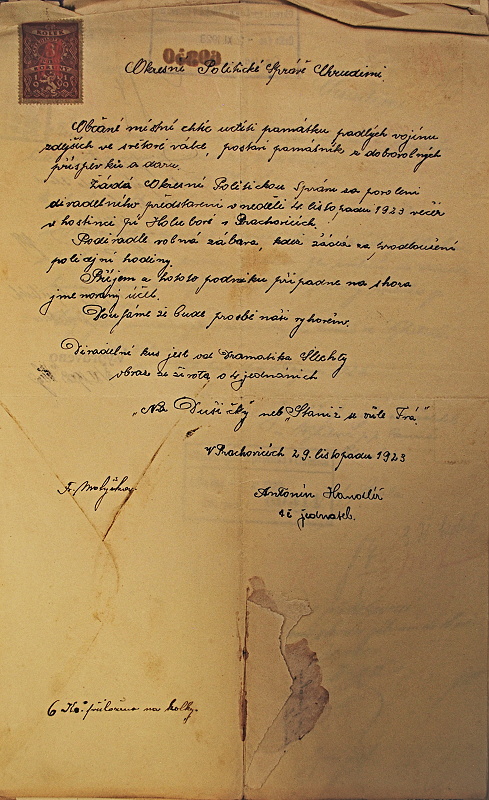 KOLEK
1919
Okresní Politické Správě Chrudimi.
Občané místní chtíc uctíti památku padlých vojínů
zdejších ve světové válce, postaví památník z dobrovolných
příspěvků a darů.
Žádá Okresní Politickou Správu za povolení
divadelního představení v neděli 4. listopadu 1923 večer
v hostinci pí Holubové v Prachovicích.
Po divadle volná zábava, kdež žádá za prodloužení
policejní hodiny.
Příjem z tohoto podniku připadne na shora
jmenovaný účel.
Doufáme že bude prosbě naší vyhověno.
Divadelní kus jest od Dramatika Šlechty
obraz ze života o 4 jednáních
„Na Dušičky" neb „Staniž se vůle Tvá."
V Prachovicích 29. listopadu 1923
Antonín Handlíř
t. č. jednatel.
6 Kč přiloženo na kolky.